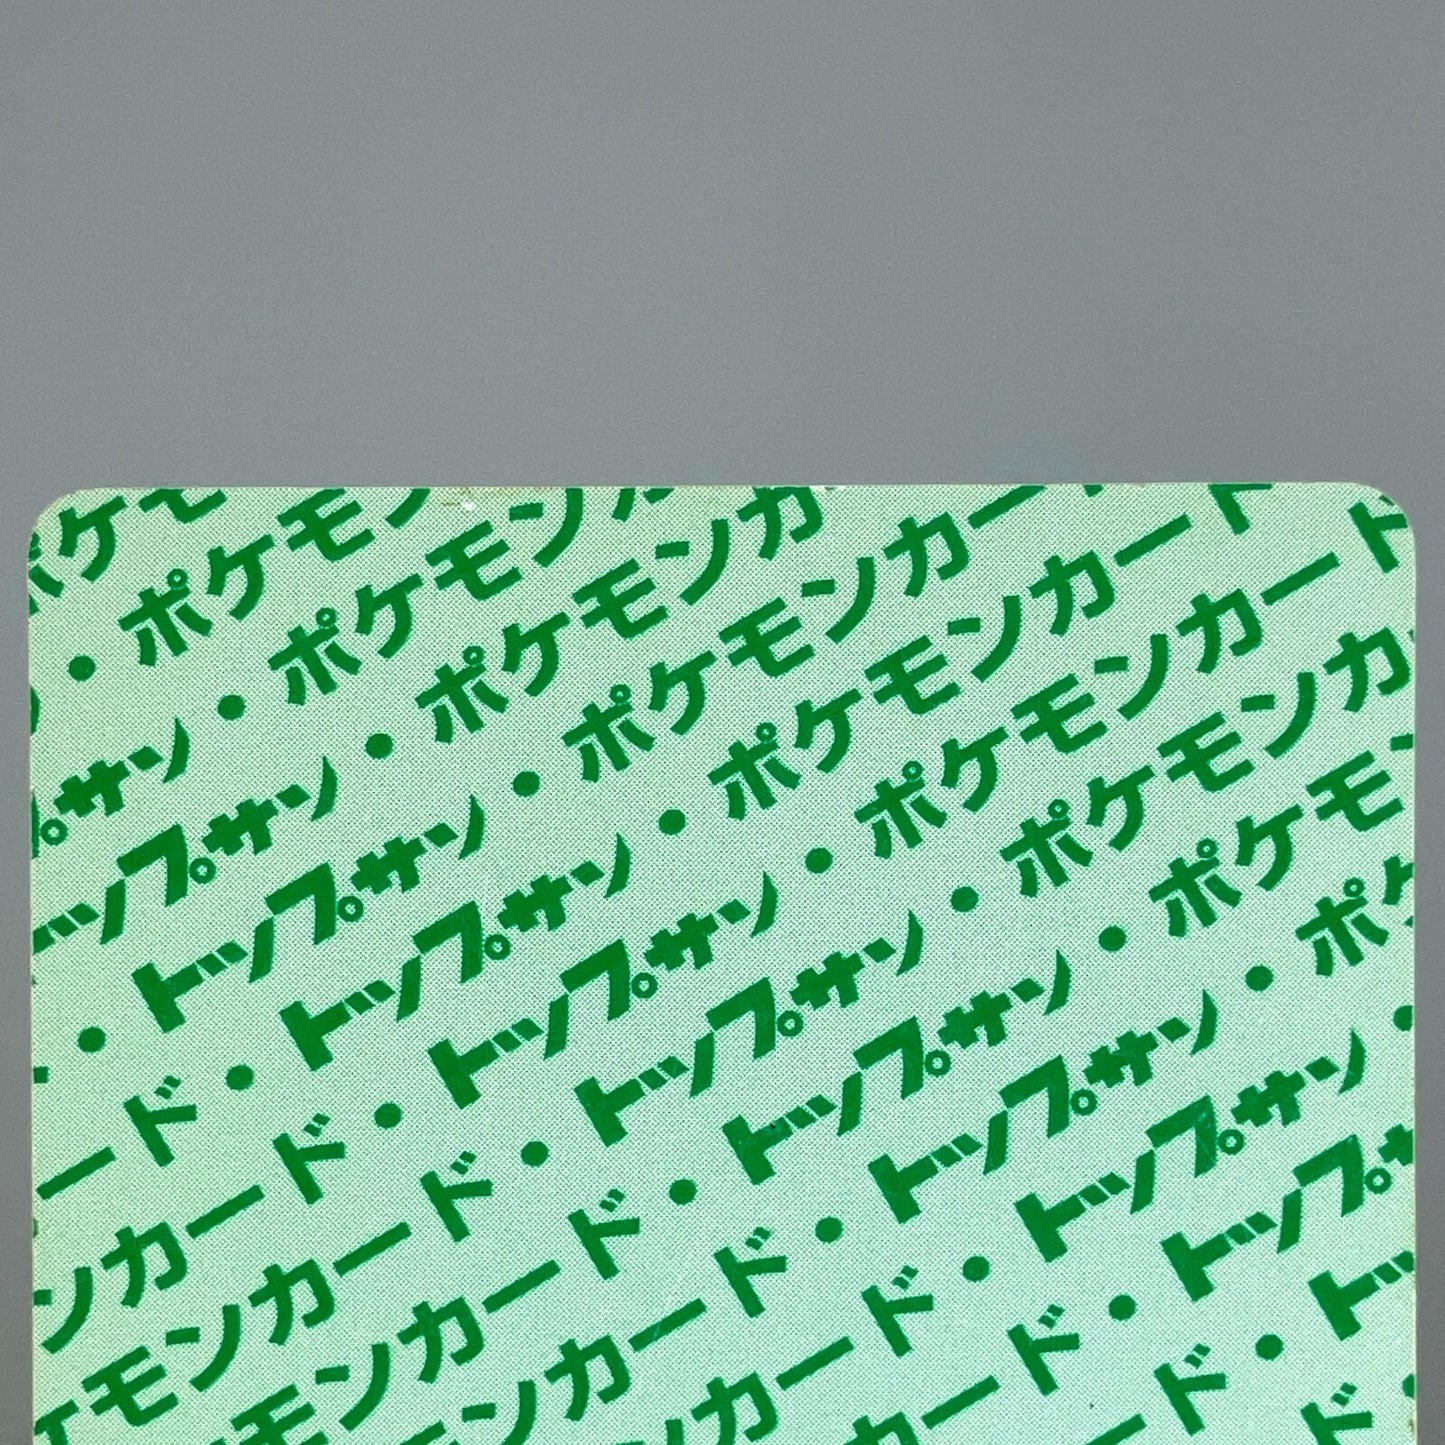 ポケモ
・ポケモン
プサン・ポケモン
ップサン・ポケモンカ
・トップサン・ポケモンカー
ード・トップサン・ポケモンカード
ンカード・トップサン・ポケモンカード
ケモンカード・トップサン・ポケモンカ
モンカード・トップサン・ポケモ
ンカード・トップサン・ポケ
カード・トップサン・
カード・トップ
ード・トッ
ド・